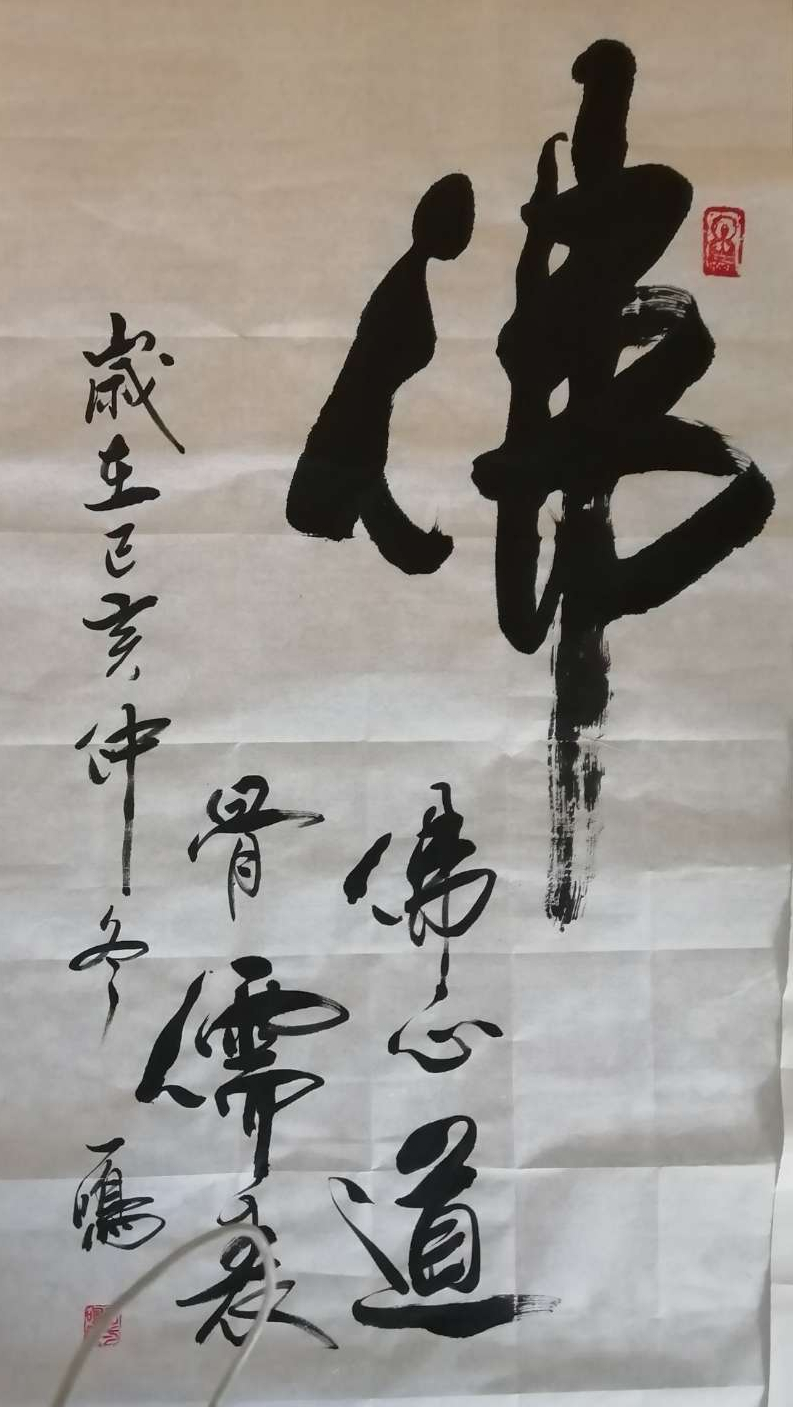 佛
佛心道
骨儒表
歲在己亥仲冬 一鳴